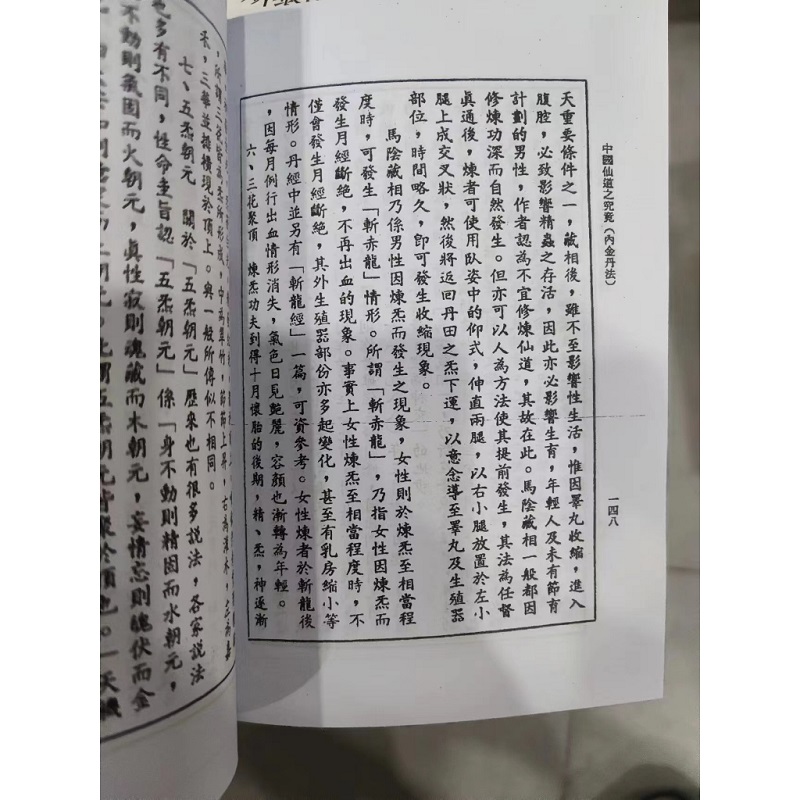 中國仙道之究竟（內金丹法）
一四八
天重要條件之一，藏相後，雖不至影響性生活，惟因睪丸收縮，進入
腹腔，必致影響精蟲之存活，因此亦必影響生育，年輕人及未有節育
計劃的男性，作者認為不宜修煉仙道，其故在此。馬陰藏相一般都因
修煉功深而自然發生。但亦可以人為方法使其提前發生，其法為任督
真通後，煉者可使用臥姿中的仰式，伸直兩腿，以右小腿放置於左小
腿上成交叉狀，然後將返回丹田之炁下運，以意念導至睪丸及生殖器
部位，時間略久，即可發生收縮現象。
馬陰藏相乃係男性因煉炁而發生之現象，女性則於煉炁至相當程
度時，可發生「斬赤龍」情形。所謂「斬赤龍」，乃指女性因煉炁而
發生月經斷絕，不再出血的現象。事實上女性煉炁至相當程度時，不
僅會發生月經斷絕，其外生殖器部份亦多起變化，甚至有乳房縮小等
情形。丹經中並另有「斬龍經」一篇，可資參考。女性煉者於斬龍後
，因每月例行出血情形消失，氣色日見艷麗，容顏也漸轉為年輕。
六、三花聚頂　煉炁功夫到得十月懷胎的後期，精、炁，神逐漸
禾，三華並提橫現於頂上。與一般所傳似不相同。
七、五炁朝元　關於「五炁朝元」歷來也有很多說法，各家說法
也多有不同，性命圭旨認「五炁朝元」係「身不動則精固而水朝元，
不動則氣固而火朝元，真性寂則魂藏而木朝元，妄情忘則魄伏而金